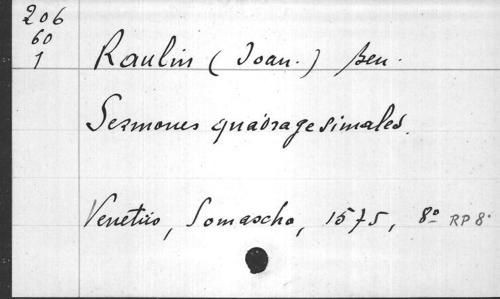 206
60
1
Raulin (Joan.) sen.
Sermones quadragesimales.
Venetiis, Somascho, 1575, 8º RP 8.